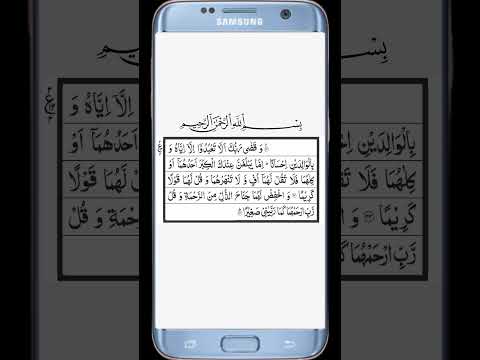 SAMSUNG
بِسْمِ اللهِ الرَّحْمٰنِ الرَّحِيْمِ
وَ قَضٰى رَبُّكَ اَلَّا تَعْبُدُوْۤا اِلَّاۤ اِيَّاهُ وَ
بِالْوَالِدَيْنِ اِحْسَانًا ؕ اِمَّا يَبْلُغَنَّ عِنْدَكَ الْكِبَرَ اَحَدُهُمَاۤ اَوْ
كِلٰهُمَا فَلَا تَقُلْ لَّهُمَاۤ اُفٍّ وَّ لَا تَنْهَرْهُمَا وَ قُلْ لَّهُمَا قَوْلًا
كَرِيْمًا وَ اخْفِضْ لَهُمَا جَنَاحَ الذُّلِّ مِنَ الرَّحْمَةِ وَ قُلْ
رَّبِّ ارْحَمْهُمَا كَمَا رَبَّيٰنِيْ صَغِيْرًا
اِلَّاۤ اِيَّاهُ وَ
بِالْوَالِدَيْنِ اَحَدُهُمَاۤ اَوْ
كِلٰهُمَا فَلَا لَّهُمَا قَوْلًا
كَرِيْمًا وَ الرَّحْمَةِ وَ قُلْ
رَّبِّ ارْحَمْهُمَا